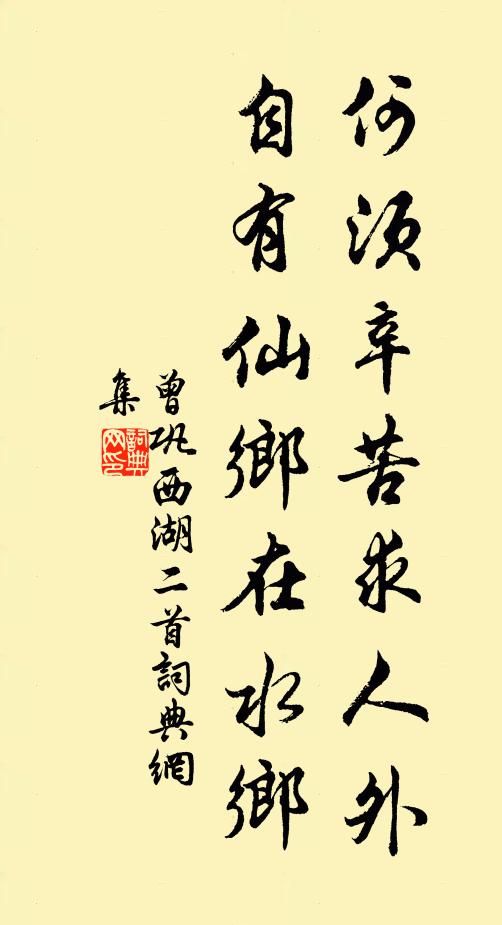 何須辛苦求人外
自有仙鄉在水鄉
曾巩西湖二首詞典網
集
詞典
网印